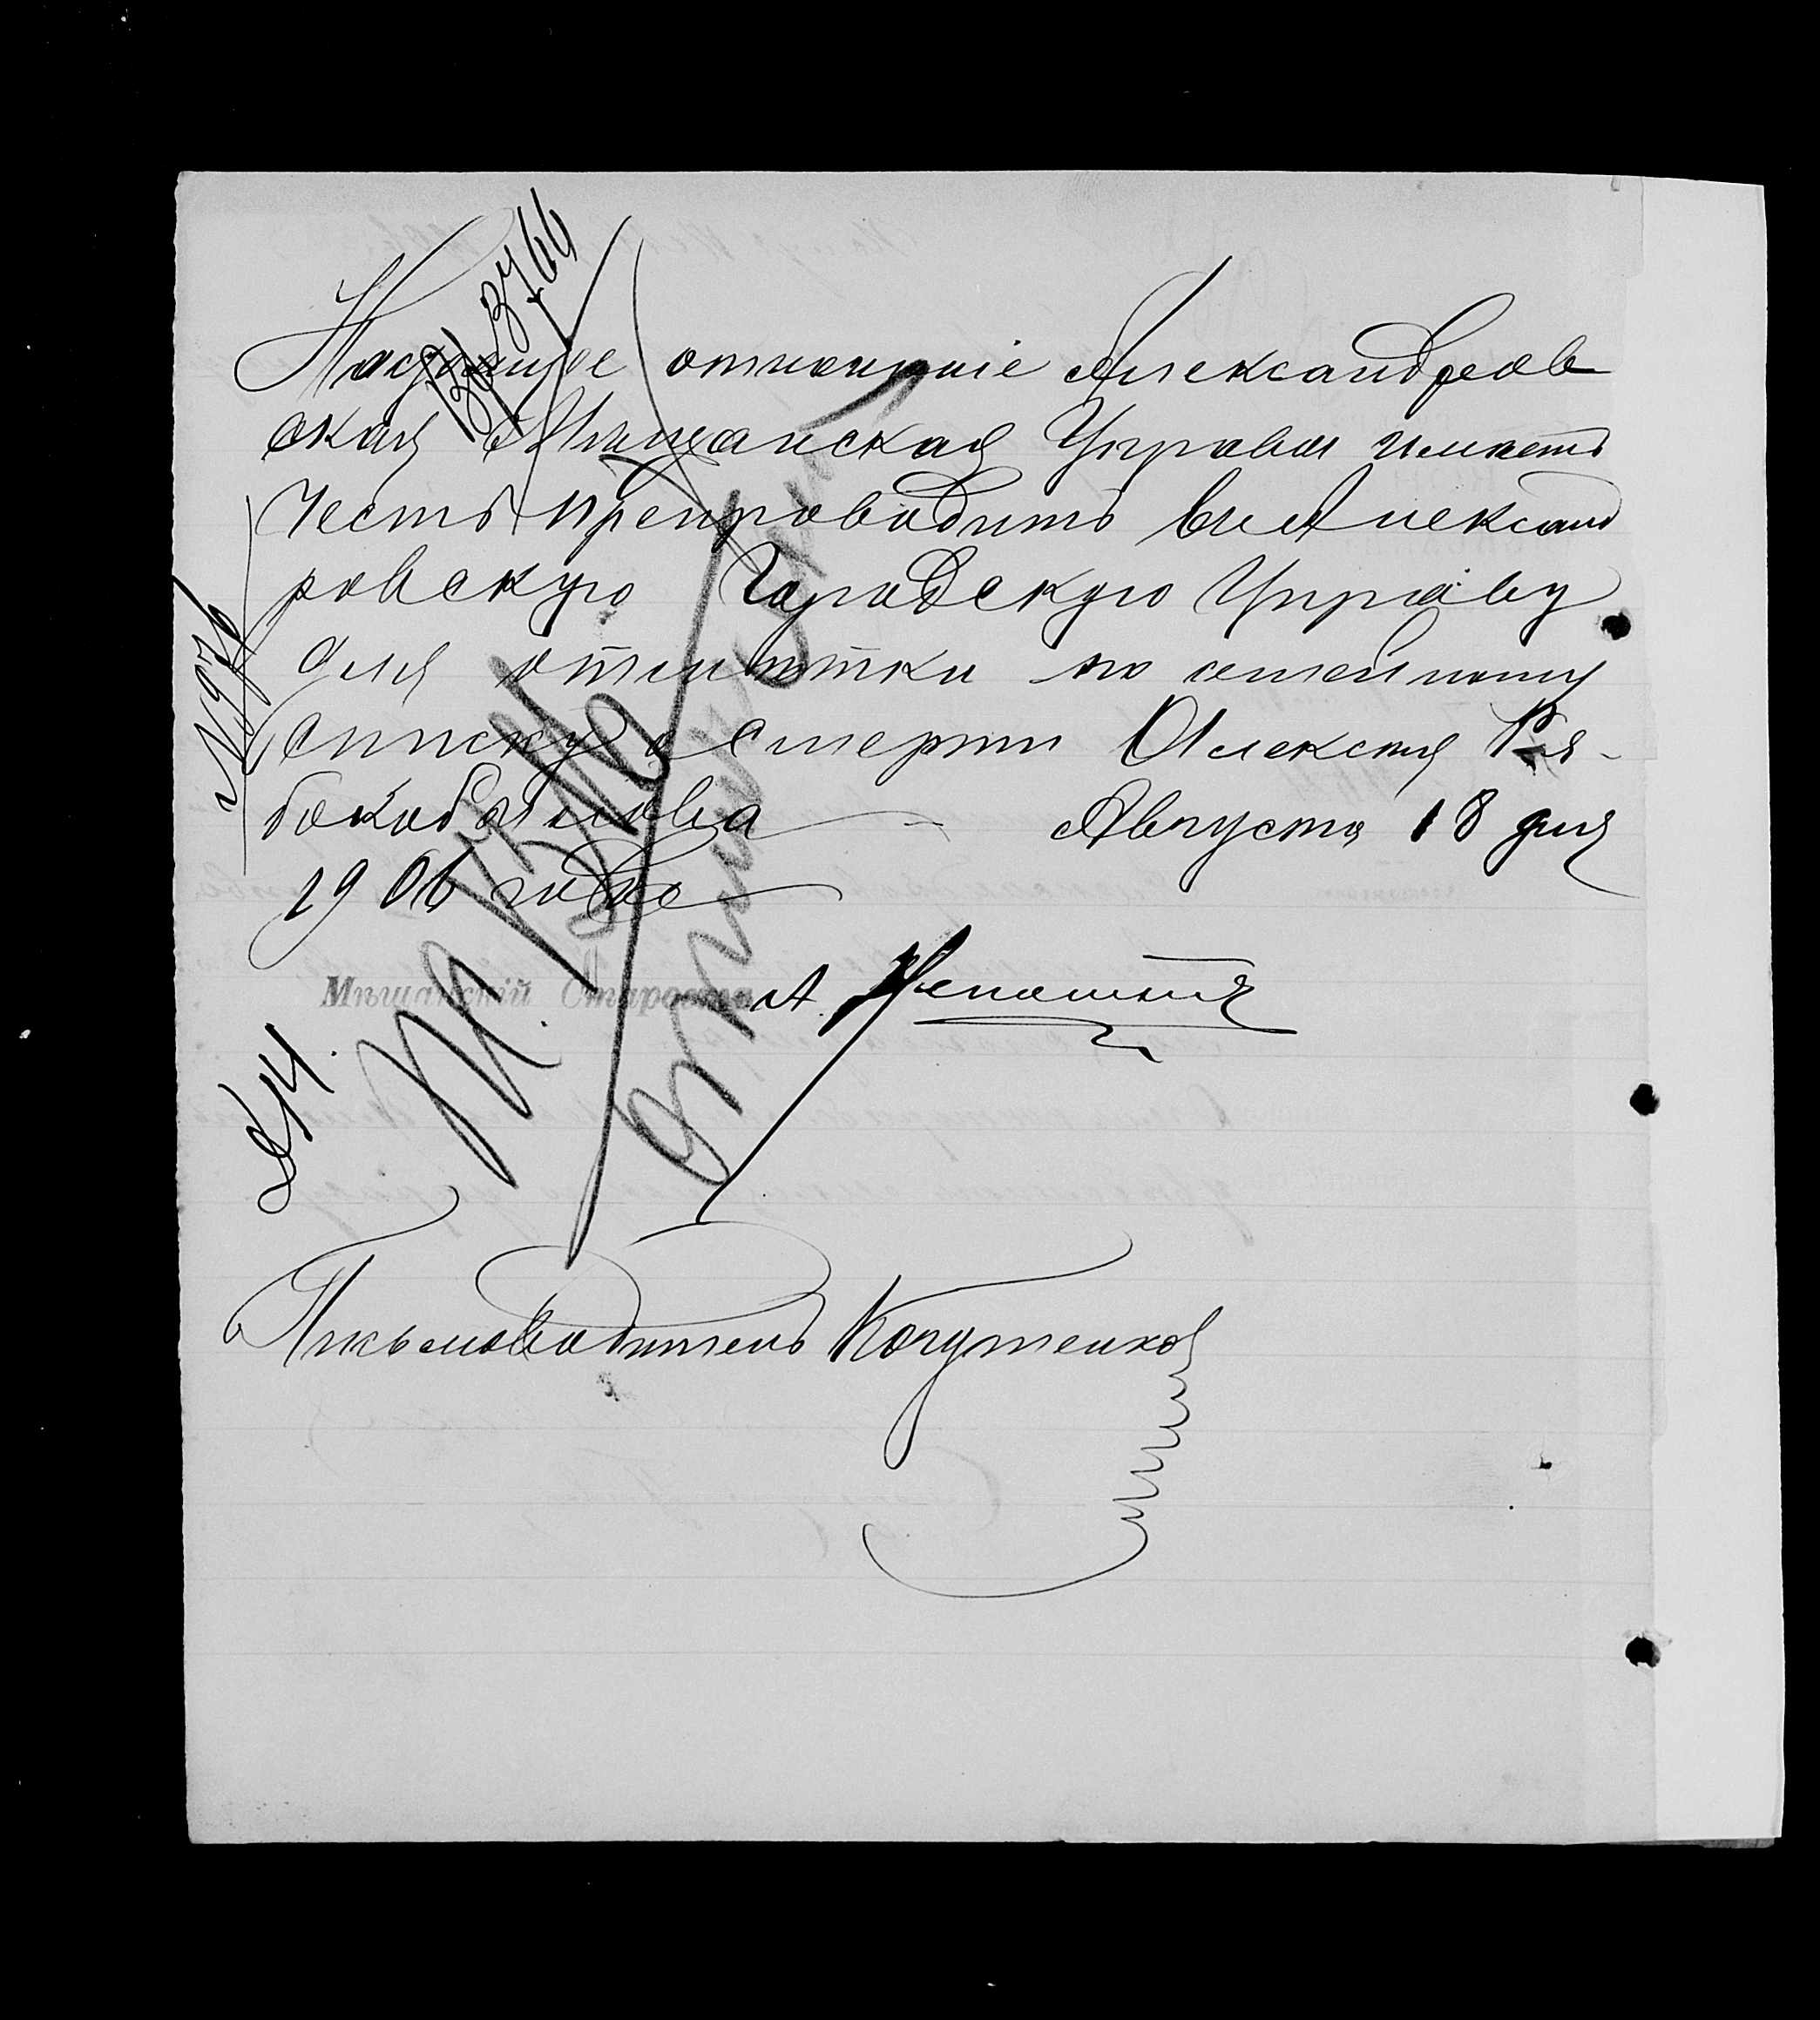 Вх 3766
Настоящее отношеніе Александров
ская Мѣщанская Управа имѣетъ
честь препроводить в Александ
ровскую Городскую Управу
для отмѣтки по семейному
списку о смерти Алексѣя Ря-
бокобылова Августа 18 дня
1906 года
№976
Мѣщанскій Староста А.
№14.
Письмоводитель